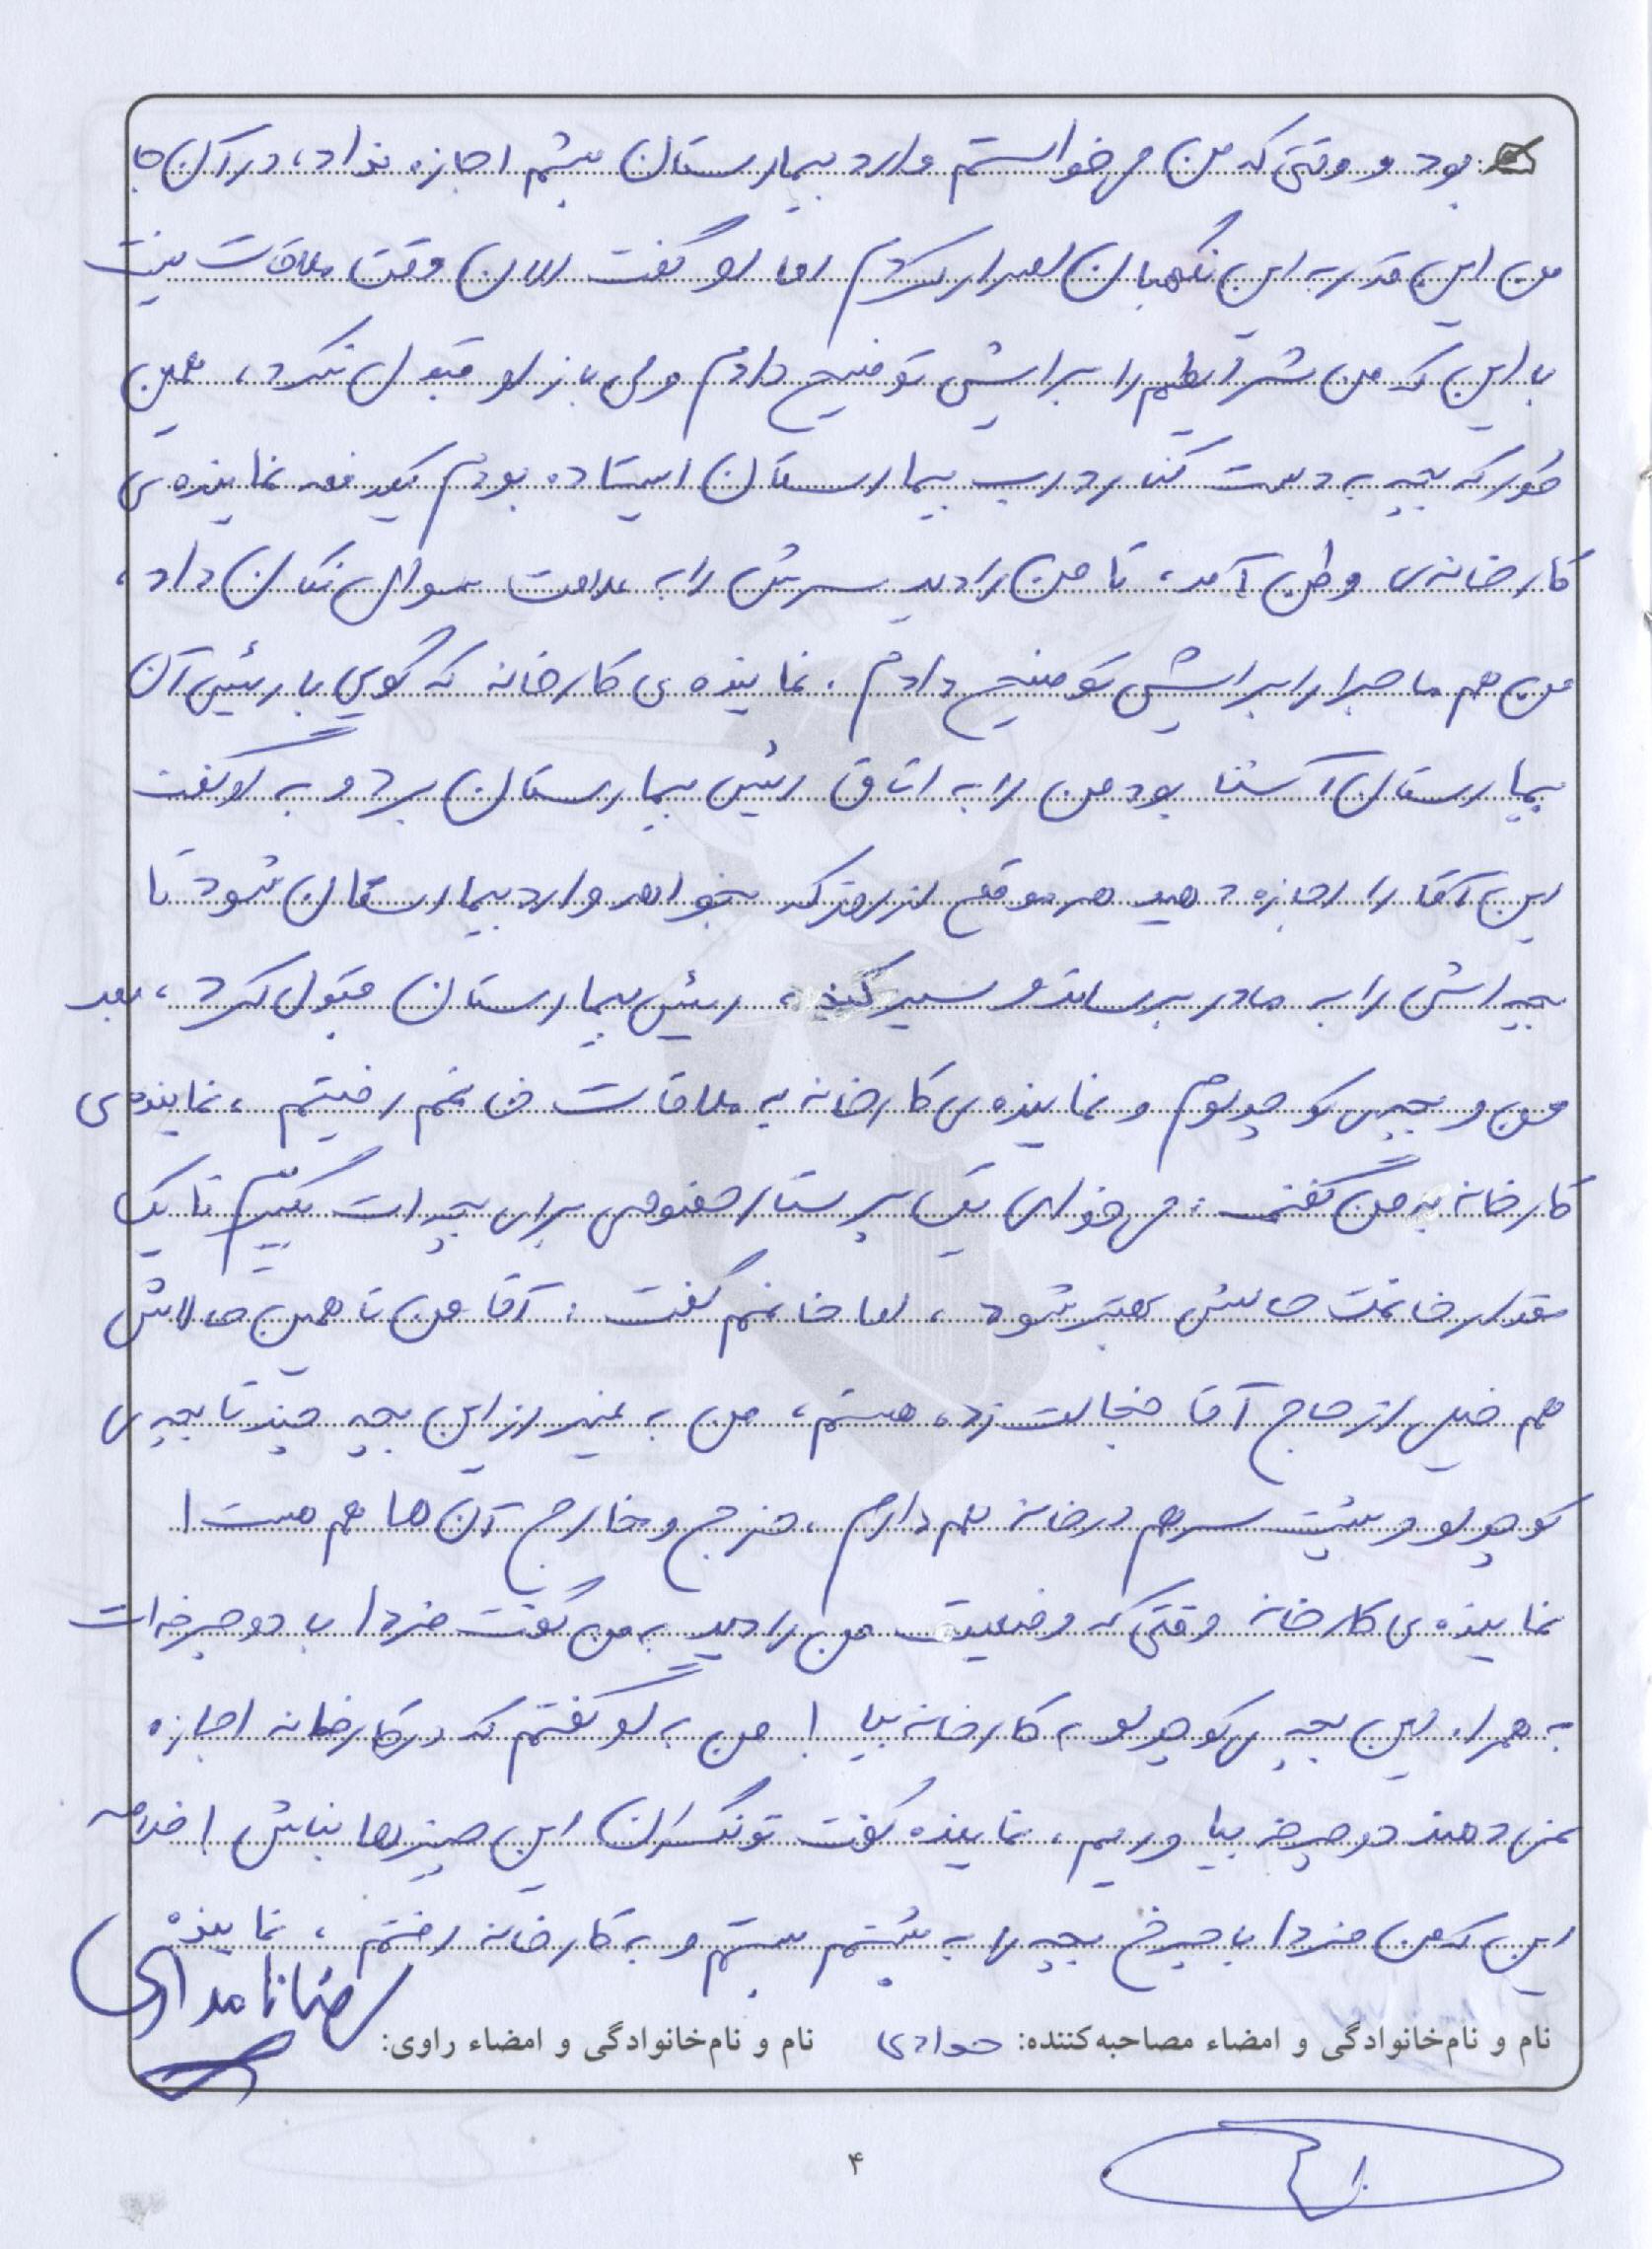 بود و وقتی که من می خواستم وارد بیمارستان بشم اجازه نداد، در آن جا
من این قدر به این نگهبان اصرار کردم اما او گفت الان وقت ملاقات نیست
با این که من شرایطم را برایش توضیح دادم ولی باز او قبول نکرد، همین
طور که بچه به دست کنار درب بیمارستان ایستاده بودم یکدفعه نماینده ی
کارخانه ی وطن آمد، تا من را دید سرش را به علامت سوال تکان داد،
من هم ماجرا را برایش توضیح دادم. نماینده ی کارخانه که گویی با رئیس آن
بیمارستان آشنا بود من را به اتاق رئیس بیمارستان برد و به او گفت
این آقا را اجازه دهید هر موقع از روز که بخواهد وارد بیمارستان شود تا
بچه اش را به مادر برساند و سیر کند، رئیس بیمارستان قبول کرد، بعد
من و بچه ی کوچولوم و نماینده ی کارخانه به ملاقات خانمم رفتیم، نماینده ی
کارخانه به من گفت: می خوای یک پرستار خصوصی برای بچه ات بگیریم تا یک
مقدار خانمت حالش بهتر شود، اما خانمم گفت: آقا من تا همین حالاش
هم خیلی از حاج آقا خجالت زده هستم، من به غیر از این بچه چند تا بچه ی
کوچولو و پشت سر هم در خانه هم دارم، خرج و مخارج آن ها هم هست!
نماینده ی کارخانه وقتی که وضعیت من را دید به من گفت فردا با دوچرخه ات
به همراه این بچه ی کوچولو به کارخانه بیا! من به او گفتم که در کارخانه اجازه
نمی دهند دوچرخه بیاوریم، نماینده گفت تو نگران این چیزها نباش! خلاصه
این که من فردا با چرخ بچه را به پشتم بستم و به کارخانه رفتم، نماینده
نام و نام‌خانوادگی و امضاء مصاحبه‌کننده: جوادی نام و نام‌خانوادگی و امضاء راوی:
۴